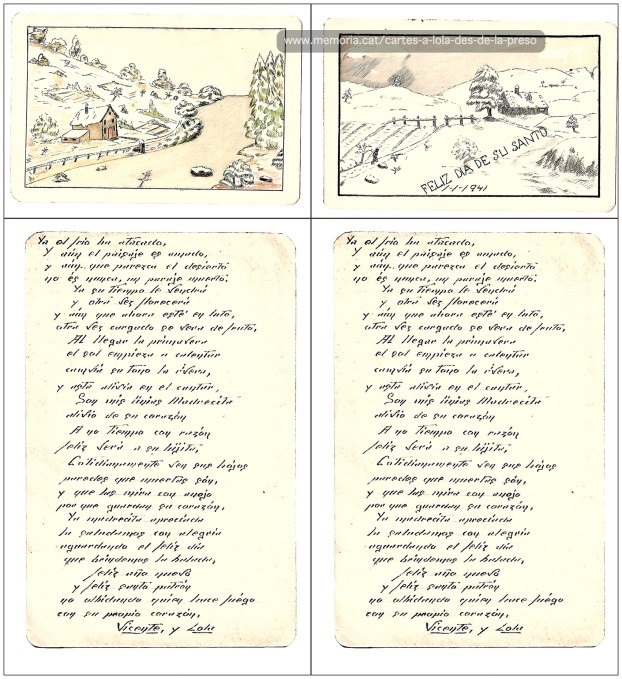 www.memoria.cat/cartes-a-lola-des-de-la-preso
FELIZ DIA DE SU SANTO
1-1-1941
Ya el frio ha atacado,
y aún el paisaje es mudo,
y aún que parezca el desierto
no es nunca, un paraje muerto.
Ya su tiempo le vendrá
y otra vez florecerá
y aún que ahora esté en luto,
otra vez cargado se verá de fruto,
AL llegar la primavera
el sol empieza a calentar
la rivera,
y en el cantar,
Son mis Madrecita
de su corazón
A no tiempo con razón
feliz será a su hijita,
Cotidianamente ven sus hojas
paredes que muertas són,
y que las mira con enojo
por que guardan su corazón,
Ya madrecita
la saludamos con alegria
aguardando el feliz dia
que brindemos la
feliz año nuevo
y feliz santo patrón
no olbidando quien hace fuego
con su propio corazón,
Vicente, y Lola
Ya el frio ha atacado,
y aún el paisaje es mudo,
y aún que parezca el desierto
no es nunca, un paraje muerto.
Ya su tiempo le vendrá
y otra vez florecerá
y aún que ahora esté en luto,
otra vez cargado se verá de fruto,
AL llegar la primavera
el sol empieza a calentar
la rivera,
y en el cantar,
Son mis Madrecita
de su corazón
A no tiempo con razón
feliz será a su hijita,
Cotidianamente ven sus hojas
paredes que muertas són,
y que las mira con enojo
por que guardan su corazón,
Ya madrecita
la saludamos con alegria
aguardando el feliz dia
que brindemos la
feliz año nuevo
y feliz santo patrón
no olbidando quien hace fuego
con su propio corazón,
Vicente, y Lola